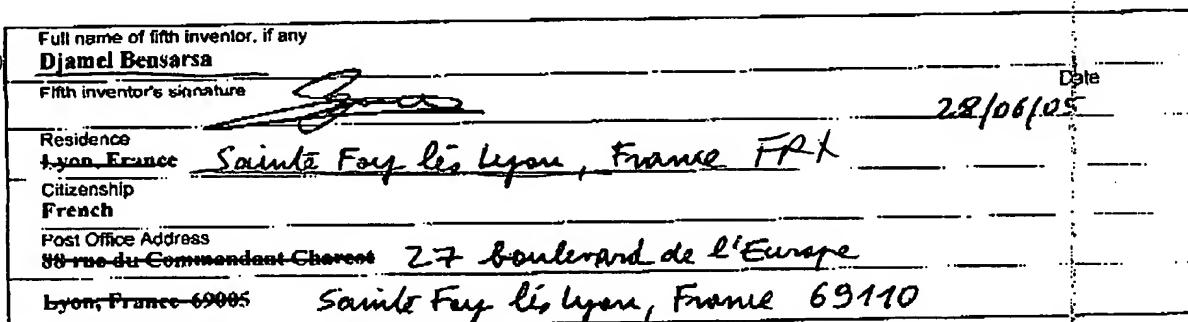 Full name of fifth inventor, if any
Djamel Bensarsa
Fifth inventor's signature
Date
28/06/05
Residence
Lyon, France Sainte Foy lès Lyon, France FRX
Citizenship
French
Post Office Address
88 rue du Commandant Charcot 27 boulevard de l'Europe
Lyon, France 69005 Sainte Foy lès Lyon, France 69110